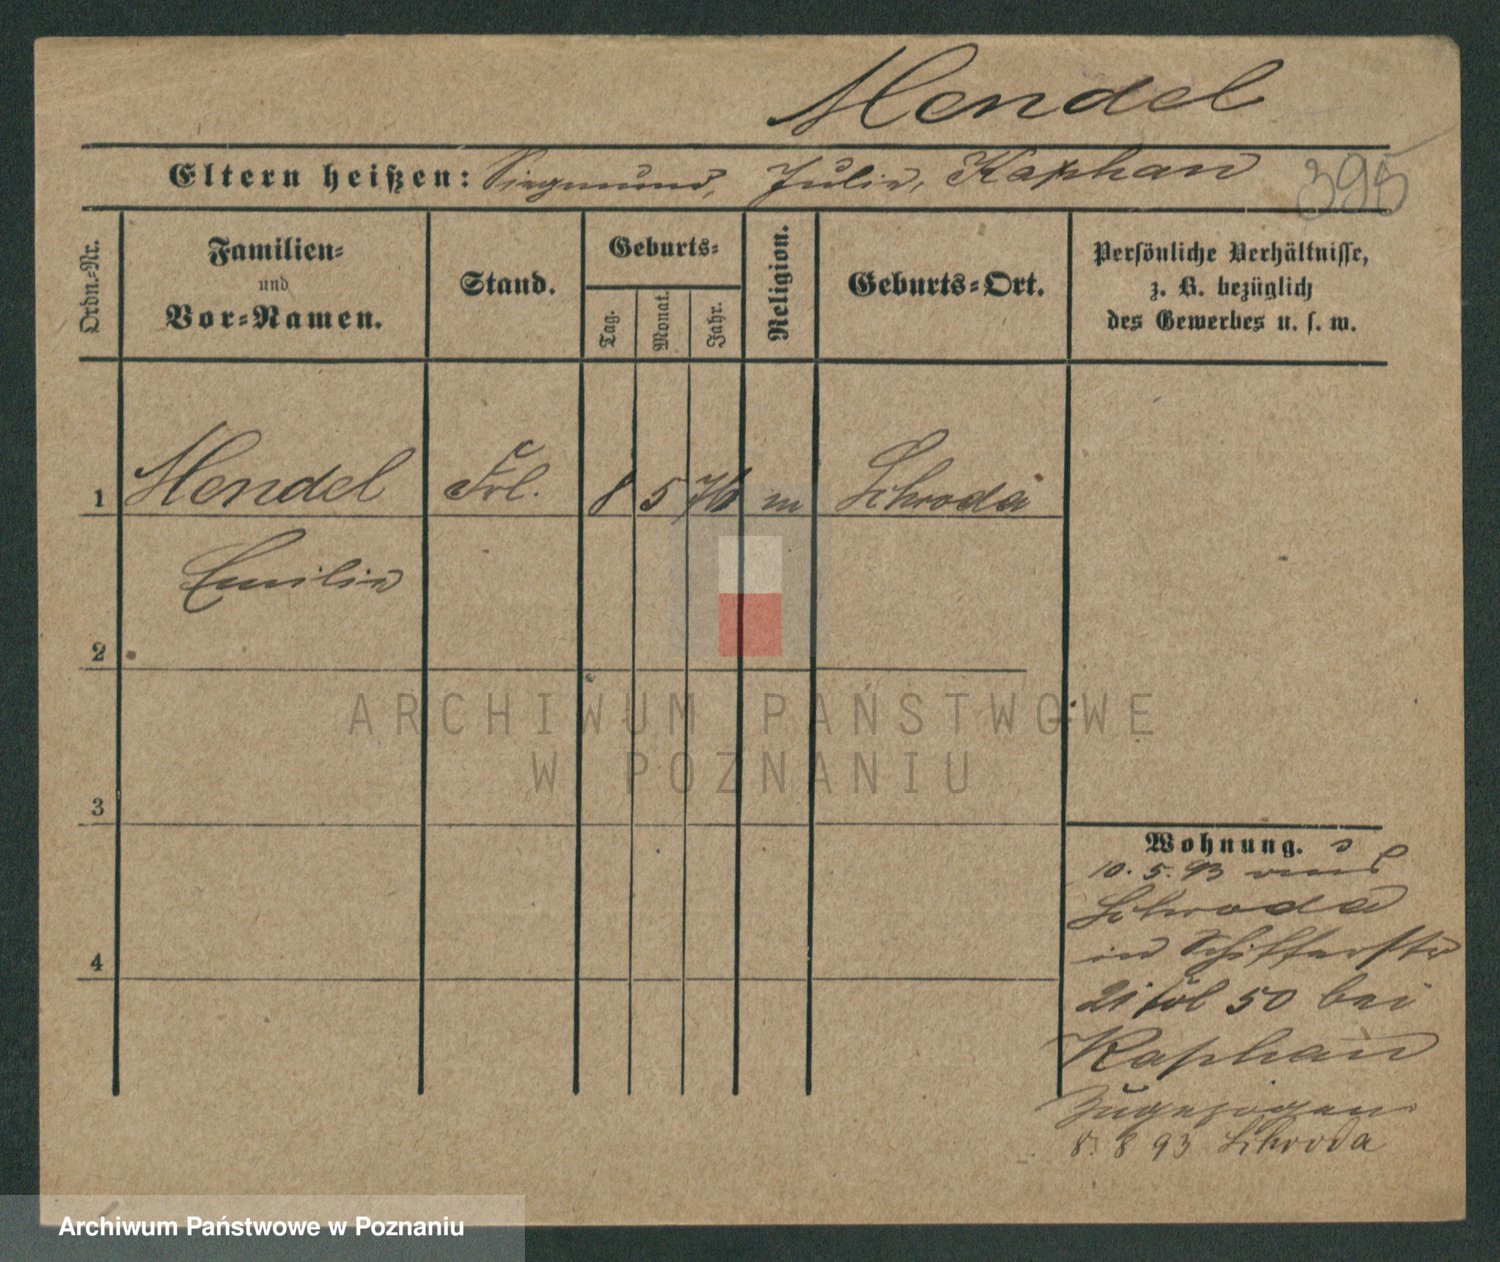 Mendel
Eltern heißen: Siegmund, Julie, Kaphan
395
Ordn.-Nr.
Familien-
und
Vor-Namen.
Stand.
Geburts-
Tag.
Monat.
Jahr.
Religion.
Geburts-Ort.
Persönliche Verhältnisse,
z. B. bezüglich
des Gewerbes u. s. w.
1 Mendel Frl. 8 5 76 m Schroda
Emilie
2
3
4
Wohnung.
10. 5. 93 aus
Schroda
in Schifferstr
21 bei
Kaphan
Zugezogen
8. 8 93 Schroda
ARCHIWUM PAŃSTWOWE
W POZNANIU
Archiwum Państwowe w Poznaniu